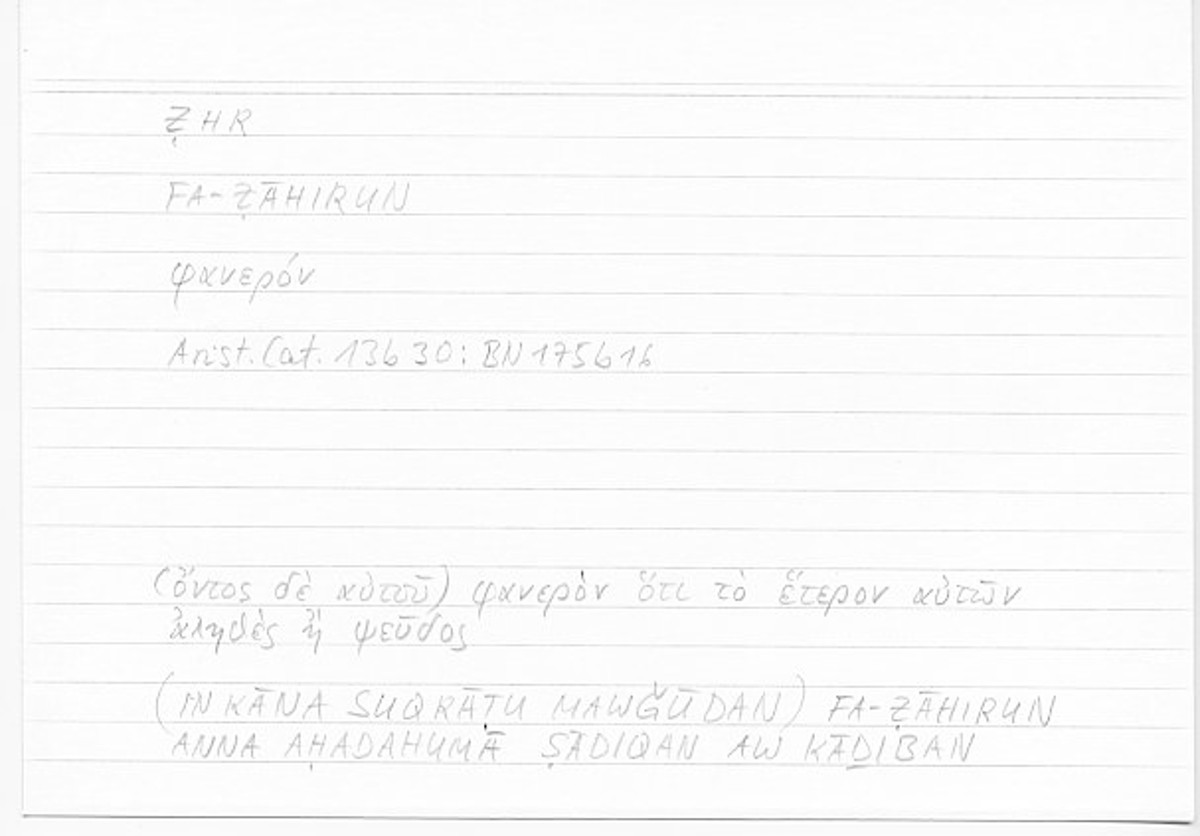 ẒHR
FA-ẒĀHIRUN
φανερόν
Arist. Cat. 13b 30: BN 175b16
(ὄντος δὲ αὐτοῦ) φανερὸν ὅτι τὸ ἕτερον αὐτῶν
ἀληθὲς ἢ ψεῦδος
(IN KĀNA SUQRĀṬU MAWǦŪDAN) FA-ẒĀHIRUN
ANNA AḤADAHUMĀ ṢĀDIQAN AW KĀḎIBAN